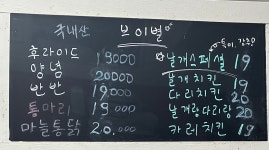 국내산 브이별
후라이드 19000
양념 20000
반반 19000
통마리 19000
마늘통닭 20.000
날개스페셜 19
날개치킨 19
다리치킨 20
날개랑다리랑 20
카리치킨 19